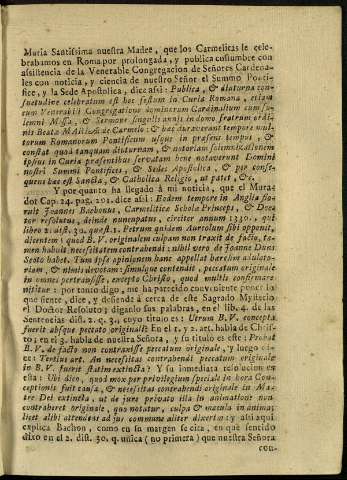 Maria Santissima nuestra Madre, que los Carmelitas le cele-
brabamos en Roma por prolongada, y publica costumbre con
assistencia de la Venerable Congregacion de Señores Cardena-
les con noticia, y ciencia de nuestro Señor el Summo Ponti-
fice, y la Sede Apostolica, dice assi: Publica, & diuturna con-
suetudine celebratum est hoc festum in Curia Romana, etiam
cum Venerabili Congregatione dominorum Cardinalium cum so-
lemni Missa, & Sermone singulis annis in domo fratrum ordi-
nis Beatæ MARIÆ de Carmelo: & hæc duraverant tempore mul-
torum Romanorum Pontificum usque in præsens tempus, &
constat quod tanquam diuturnam, & notoriam solemnizationem
ipsius in Curia præsentibus servatam bene notaverunt Domini
nostri Summi Pontifices, & Sedes Apostolica, & per conse-
quens hæc est Sancta, & Catholica Religio, ut patet, &c.
Y porquanto ha llegado à mi noticia, que el Mura-
dor Cap. 24. pag. 201. dice assi: Eodem tempore in Anglia flo-
ruit Joannes Bachonus, Carmeliticæ Scholæ Princeps, & Doc-
tor resolutus, deinde nuncupatus, circiter annum 1330. qui
libro 2. dist. 30. quæst. 1. Petrum quidem Aureolum sibi opponit,
dicentem: quod B.V. originalem culpam non traxit de facto, ta-
men habuit necessitatem contrahendi: nihil vero de Joanne Duns
Scoto habet. Tum ipse opinionem hanc appellat hæresim adulato-
riam, & nimis devotam: simulque contendit, peccatum originale
in omnes pertransisse, excepto Christo, quod multis confirmare
nititur: por tanto digo, me ha parecido conveniente poner lo
que siente, dice, y defiende acerca de este Sagrado Mysterio
el Doctor Resoluto; diganlo sus palabras, en el lib. 4. de las
Sentencias dist. 2. q. 3., cuyo titulo es: Utrum B.V. concepta
fuerit absque peccato originali? En el 1. y 2. art. habla de Chris-
to; en el 3. habla de nuestra Señora, y su titulo es este: Probat
B.V. de facto non contraxisse peccatum originale, y luego di-
ce: Tertius art. An necessitas contrahendi peccatum originale
in B.V. fuerit statim extincta? Y su inmediata resolucion es
esta: Ubi dico, quod mox per privilegium speciale in hora Con-
ceptionis fuit causa, & necessitas contrahendi originale in Ma-
tre Dei extincta, ut de jure privato illa in animatione non
contraheret originale, quo notatur, culpa & macula in anima;
licet alibi attendens ad jus commune aliter dixerim: y assi aqui
explica Bachon, como en su margen se cita, en què sentido
dixo en el 2. dist. 30. q. unica (no primera) que nuestra Señora
con-